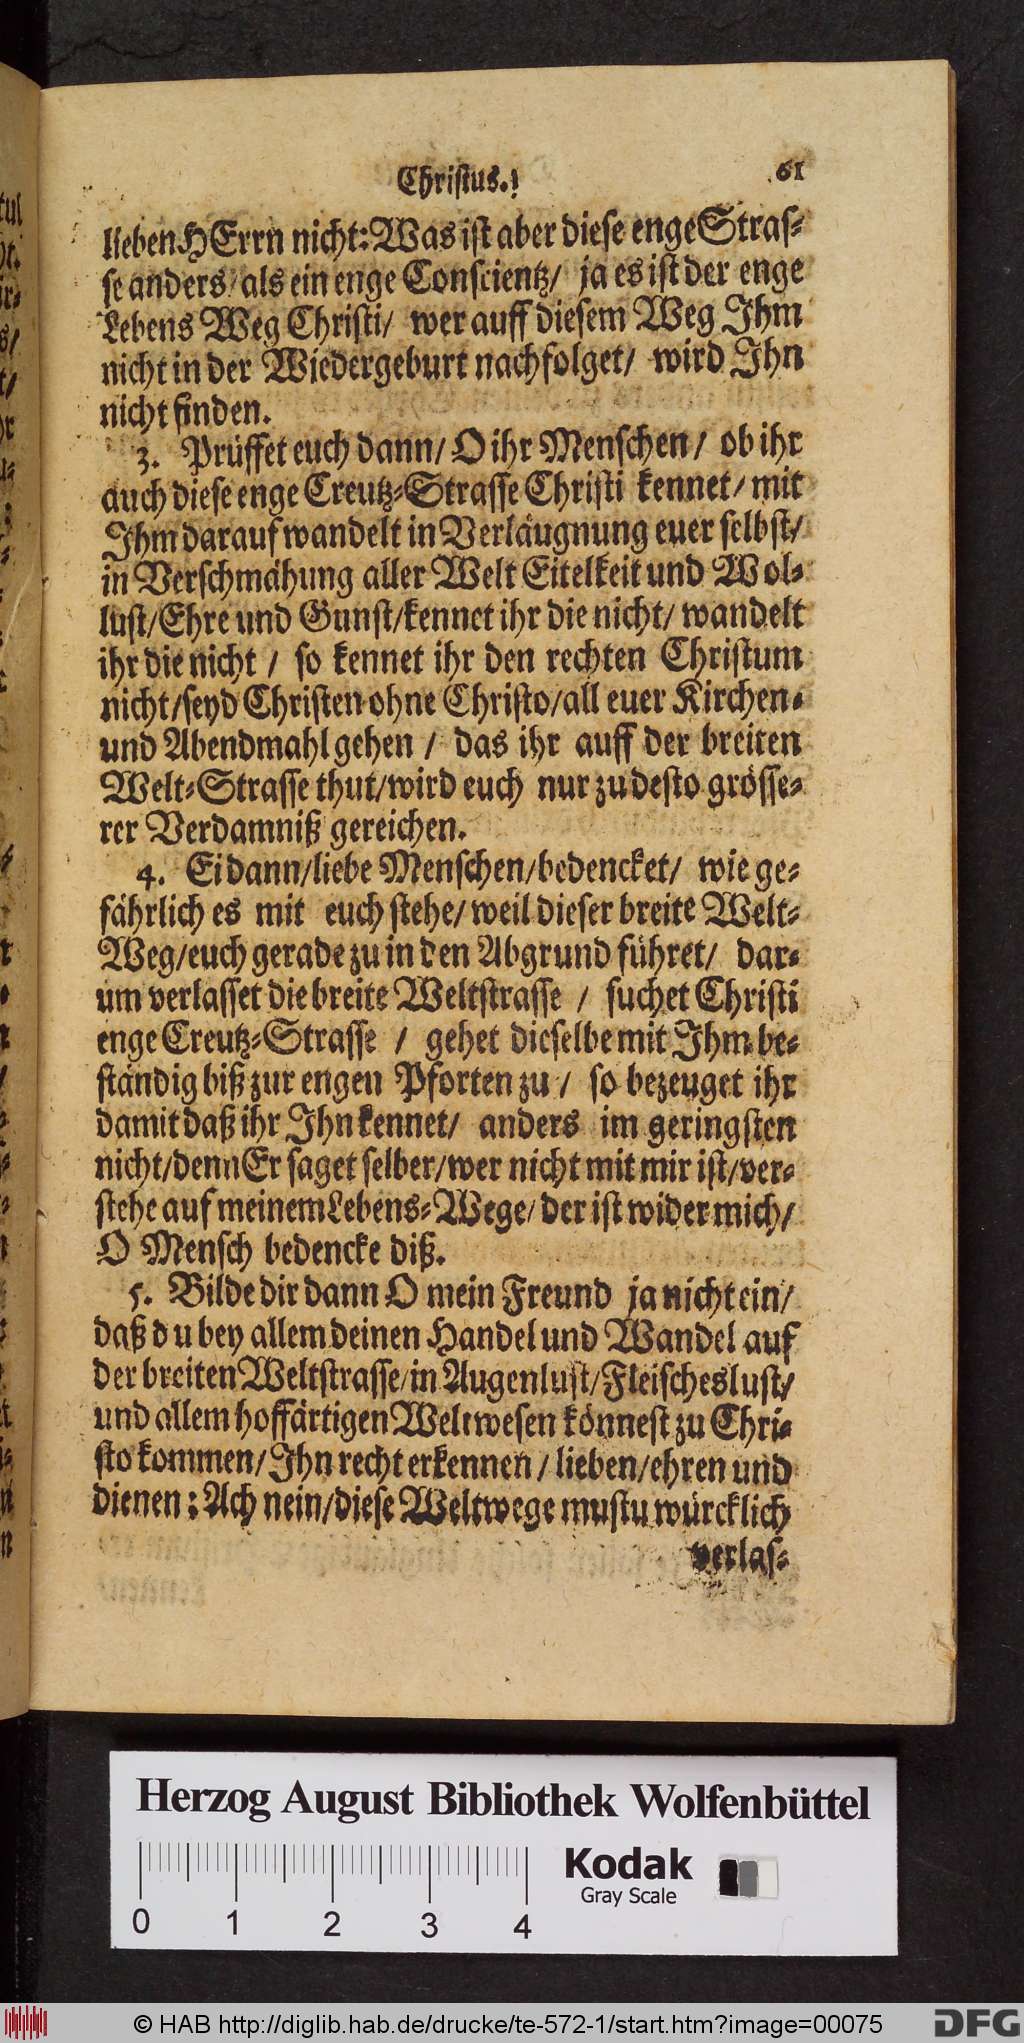 Christus.
61
lieben HErrn nicht: Was ist aber diese enge Stras-
se anders/ als ein enge Conscientz/ ja es ist der enge
Lebens Weg Christi/ wer auff diesem Weg Ihm
nicht in der Wiedergeburt nachfolget/ wird Ihn
nicht finden.
3. Prüffet euch dann/ O ihr Menschen/ ob ihr
auch diese enge Creutz-Strasse Christi kennet/ mit
Ihm darauf wandelt in Verläugnung euer selbst/
in Verschmähung aller Welt Eitelkeit und Wol-
lust/ Ehre und Gunst/ kennet ihr die nicht/ wandelt
ihr die nicht / so kennet ihr den rechten Christum
nicht/ seyd Christen ohne Christo/ all euer Kirchen-
und Abendmahl gehen / das ihr auff der breiten
Welt-Strasse thut/ wird euch nur zu desto grösse-
rer Verdamniß gereichen.
4. Ei dann/ liebe Menschen/ bedencket/ wie ge-
fährlich es mit euch stehe/ weil dieser breite Welt-
Weg/ euch gerade zu in den Abgrund führet/ dar-
um verlasset die breite Weltstrasse / suchet Christi
enge Creutz-Strasse / gehet dieselbe mit Ihm be-
ständig biß zur engen Pforten zu / so bezeuget ihr
damit daß ihr Ihn kennet/ anders im geringsten
nicht/ denn Er saget selber/ wer nicht mit mir ist/ ver-
stehe auf meinem Lebens-Wege/ der ist wider mich/
O Mensch bedencke diß.
5. Bilde dir dann O mein Freund ja nicht ein/
daß du bey allem deinen Handel und Wandel auf
der breiten Weltstrasse/ in Augenlust/ Fleischeslust/
und allem hoffärtigen Weltwesen könnest zu Chri-
sto kommen/ Ihn recht erkennen / lieben/ ehren und
dienen: Ach nein/ diese Weltwege mustu würcklich
verlas-
Herzog August Bibliothek Wolfenbüttel
0 1 2 3 4
Kodak
Gray Scale
© HAB http://diglib.hab.de/drucke/te-572-1/start.htm?image=00075
DFG